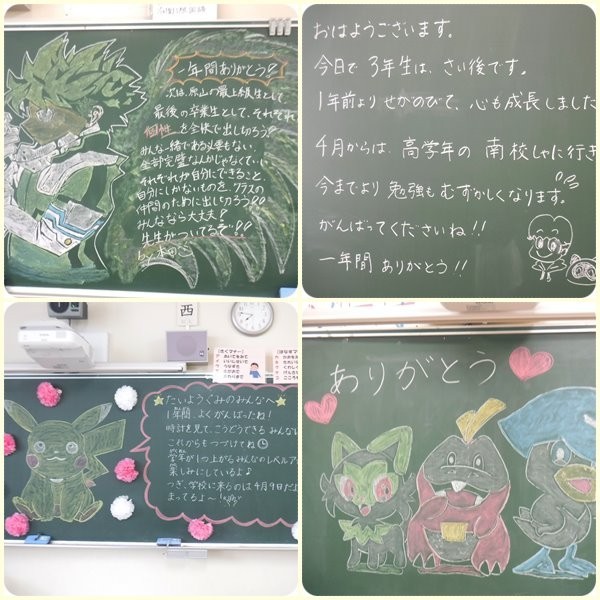 一年間ありがとう!
次は、烏山の最上級生として
最後の卒業生として、それぞれ
個性を全体で出し切ろう!
みんな一緒である必要もない、
全部完璧なんかじゃなくていい
それぞれが自分にできること、
自分にしかないものを、クラスの
仲間のために出し切ろう!!
みんななら大丈夫!
先生がついてるぞ!!
おはようございます。
今日で3年生は、さい後です。
1年前よりせがのびて、心も成長しました
4月からは、高学年の南校しゃに行き
今までより勉強もむずかしくなります。
がんばってくださいね!!
一年間ありがとう!!
西
たいようぐみのみんなへ
1年間、よくがんばったね!
時計を見て、こうどうできるみんな
これからもつづけてね
学年が1つ上がるみんなのレベルア
楽しみにしているよ♪
つぎ、学校に来るのは4月9日だよ
まってるよ〜!
ありがとう